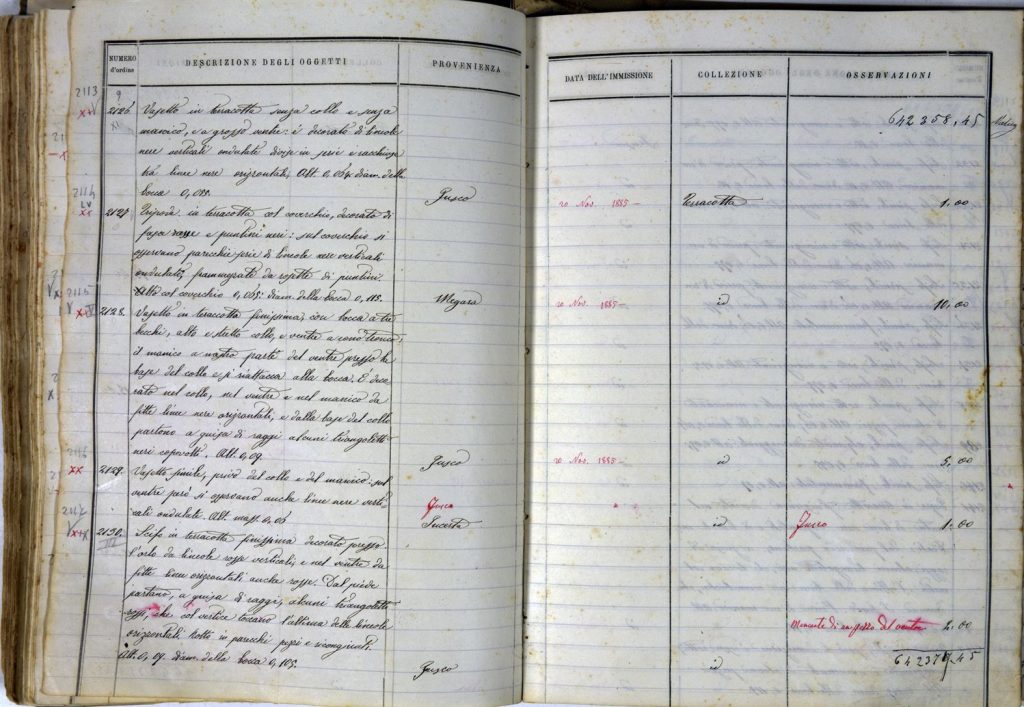 NUMERO d'ordine
DESCRIZIONE DEGLI OGGETTI
PROVENIENZA
2113
2126
Vasetto in terracotta senza collo e senza
manico, e a grosso ventre: è decorato di lineole
nere verticali ondulate divise in serie e racchiuse
tra linee nere orizzontali. Alt. 0,064 diam. della
bocca 0,025.
Fusco
2114
LV
XX
2127
Tripode in terracotta col coverchio, decorato di
fasce rosse e puntini neri: sul coverchio si
osservano parecchie serie di lineole nere verticali
ondulate, frammezzate da rosette di puntini.
Alto col coverchio 0,065. diam. della bocca 0,115.
Megara
2115
2128.
Vasetto in terracotta finissima, con bocca a tre
becchi, alto e stretto collo, e ventre a cono tronco;
il manico a nastro parte del ventre presso la
base del collo e si riattacca alla bocca. È deco-
rato nel collo, nel ventre e nel manico da
fitte linee nere orizzontali, e dalla base del collo
partono a guisa di raggi alcuni triangoletti
neri capovolti. Alt. 0,09.
Fusco
2116
XX
2129.
Vasetto simile, privo del collo e del manico: sul
ventre però si osservano anche linee nere verti-
cali ondulate. Alt. mass. 0,06
Fusco
Incerta
2117
2130.
Scifo in terracotta finissima decorato presso
l'orlo da lineole rosse verticali, e nel ventre da
fitte linee orizzontali anche rosse. Dal piede
partono, a guisa di raggi, alcuni triangoletti
rossi, che col vertice toccano l'ultima delle lineole
orizzontali. Rotto in parecchi pezzi e ricongiunti.
Alt. 0,09. diam. della bocca 0,105.
Fusco
DATA DELL'IMMISSIONE
COLLEZIONE
OSSERVAZIONI
642358,45
20 Nov. 1885 —
Terracotta
1.00
20 Nov. 1885 —
id
10,00
20 Nov. 1885 —
id
5,00
id
Fusco
1.00
Mancante di un pezzo del ventre
2.00
id
642377,45